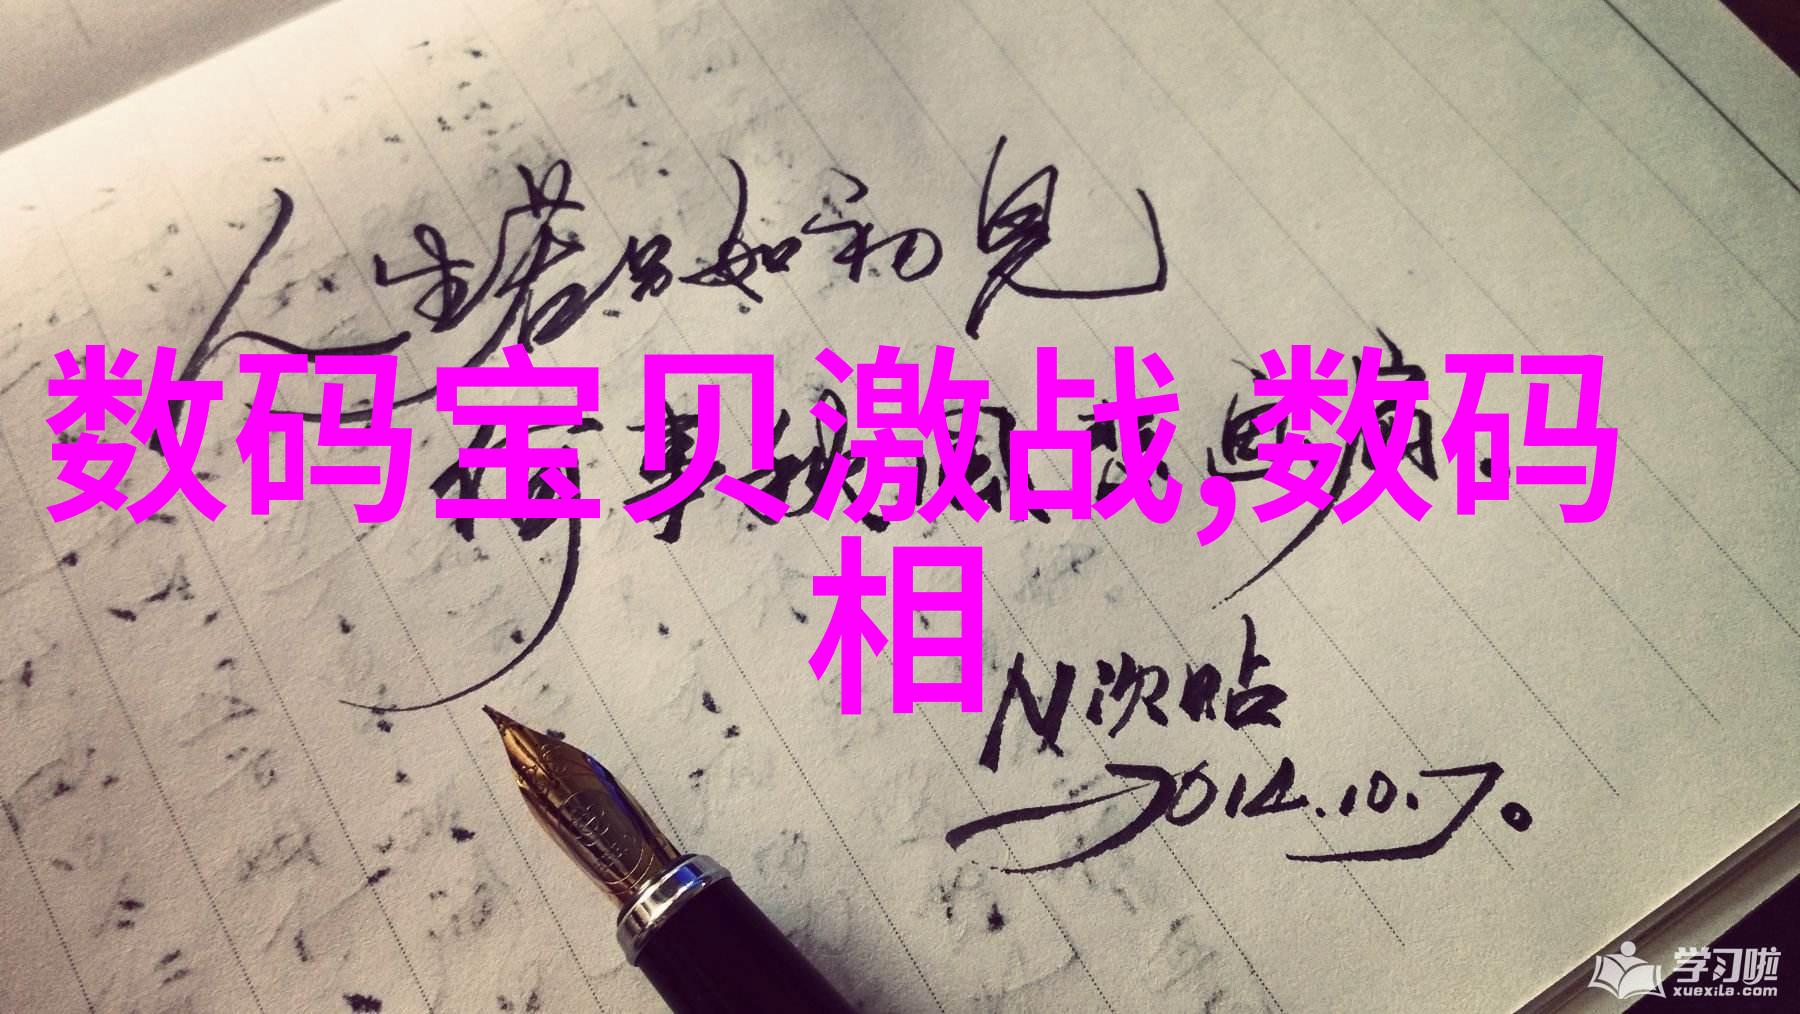 人生若只如初见
何事秋风悲画扇.
数码宝贝激战,数码
相
N次贴
2014.10.7。
学习啦
xuexila.com